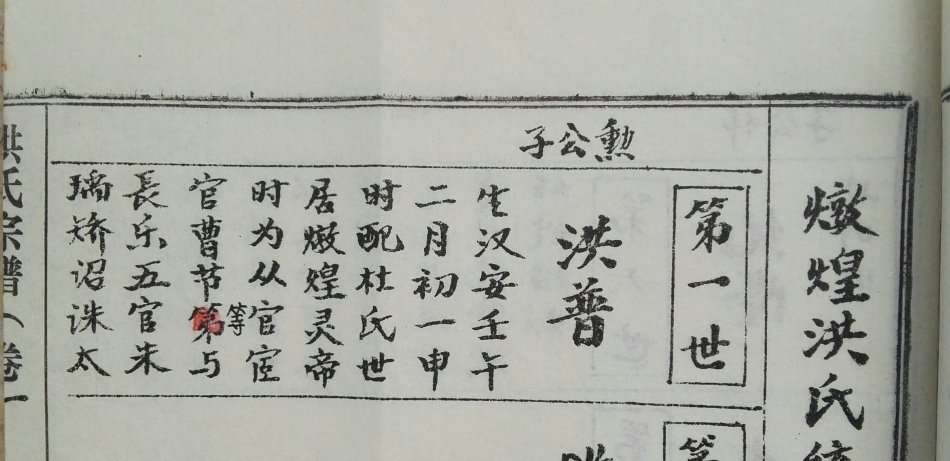 燉煌洪氏
第一世
勲公子
洪普
生汉安壬午
二月初一申
时配杜氏世
居燉煌灵帝
时为从官宦
官曹节第等与
長乐五官朱
瑀矫诏诛太
洪氏宗譜（卷一